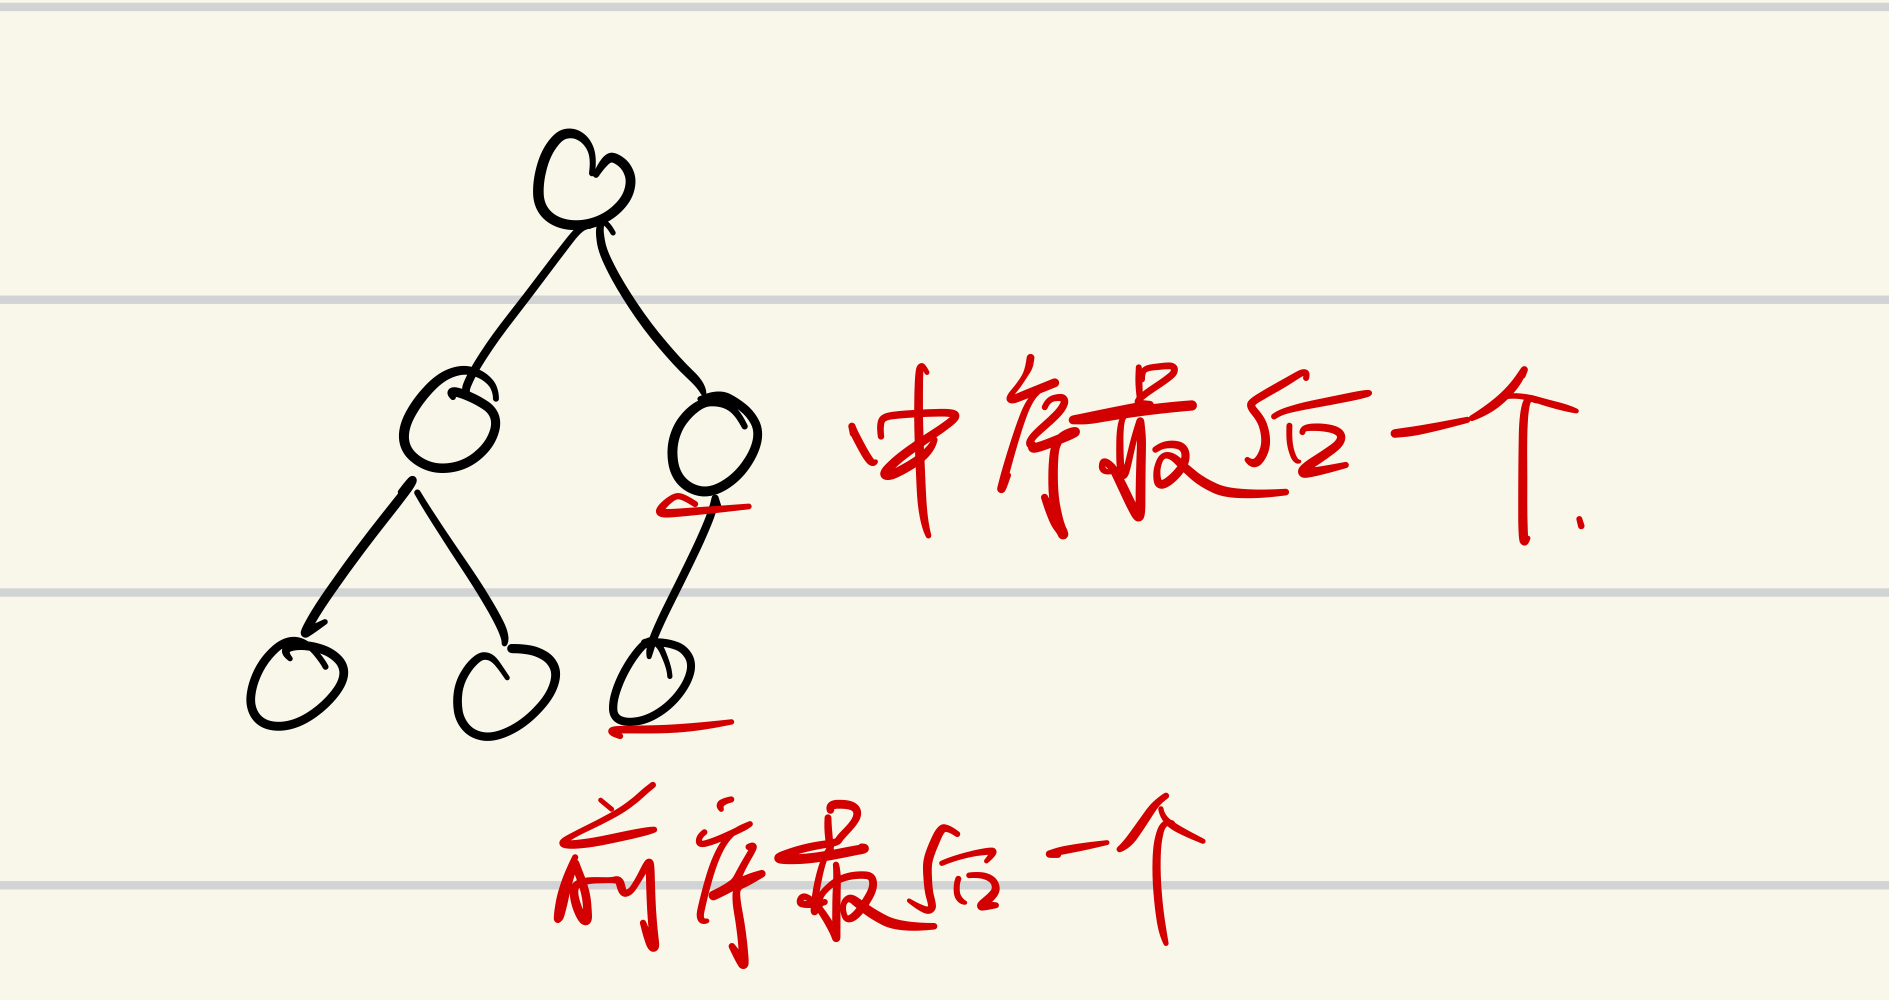 中序最后一个.
前序最后一个